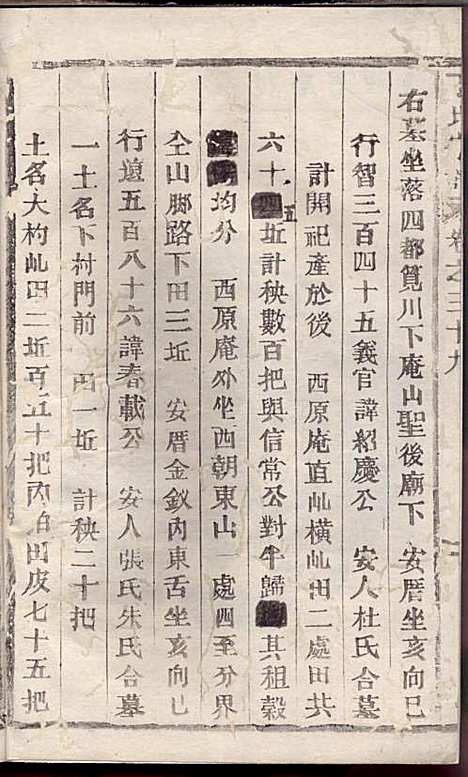 氏宗譜卷之三十九
右墓坐落四都筧川下庵山聖後廟下 安厝坐亥向巳
行智三百四十五義官諱紹慶公 安人杜氏合墓
計開祀產於後 西原庵直屾橫屾田二處田共
六十五坵計秧數百把與信常公對半歸其租穀
均分 西原庵外坐西朝東山一處四至分界
仝山腳路下田三坵 安厝金釵內東舌坐亥向巳
行道五百八十六諱春載公 安人張氏朱氏合墓
一土名下村門前 田一坵 計秧二十把
土名大杓屾田二坵百五十把內拍田皮七十五把